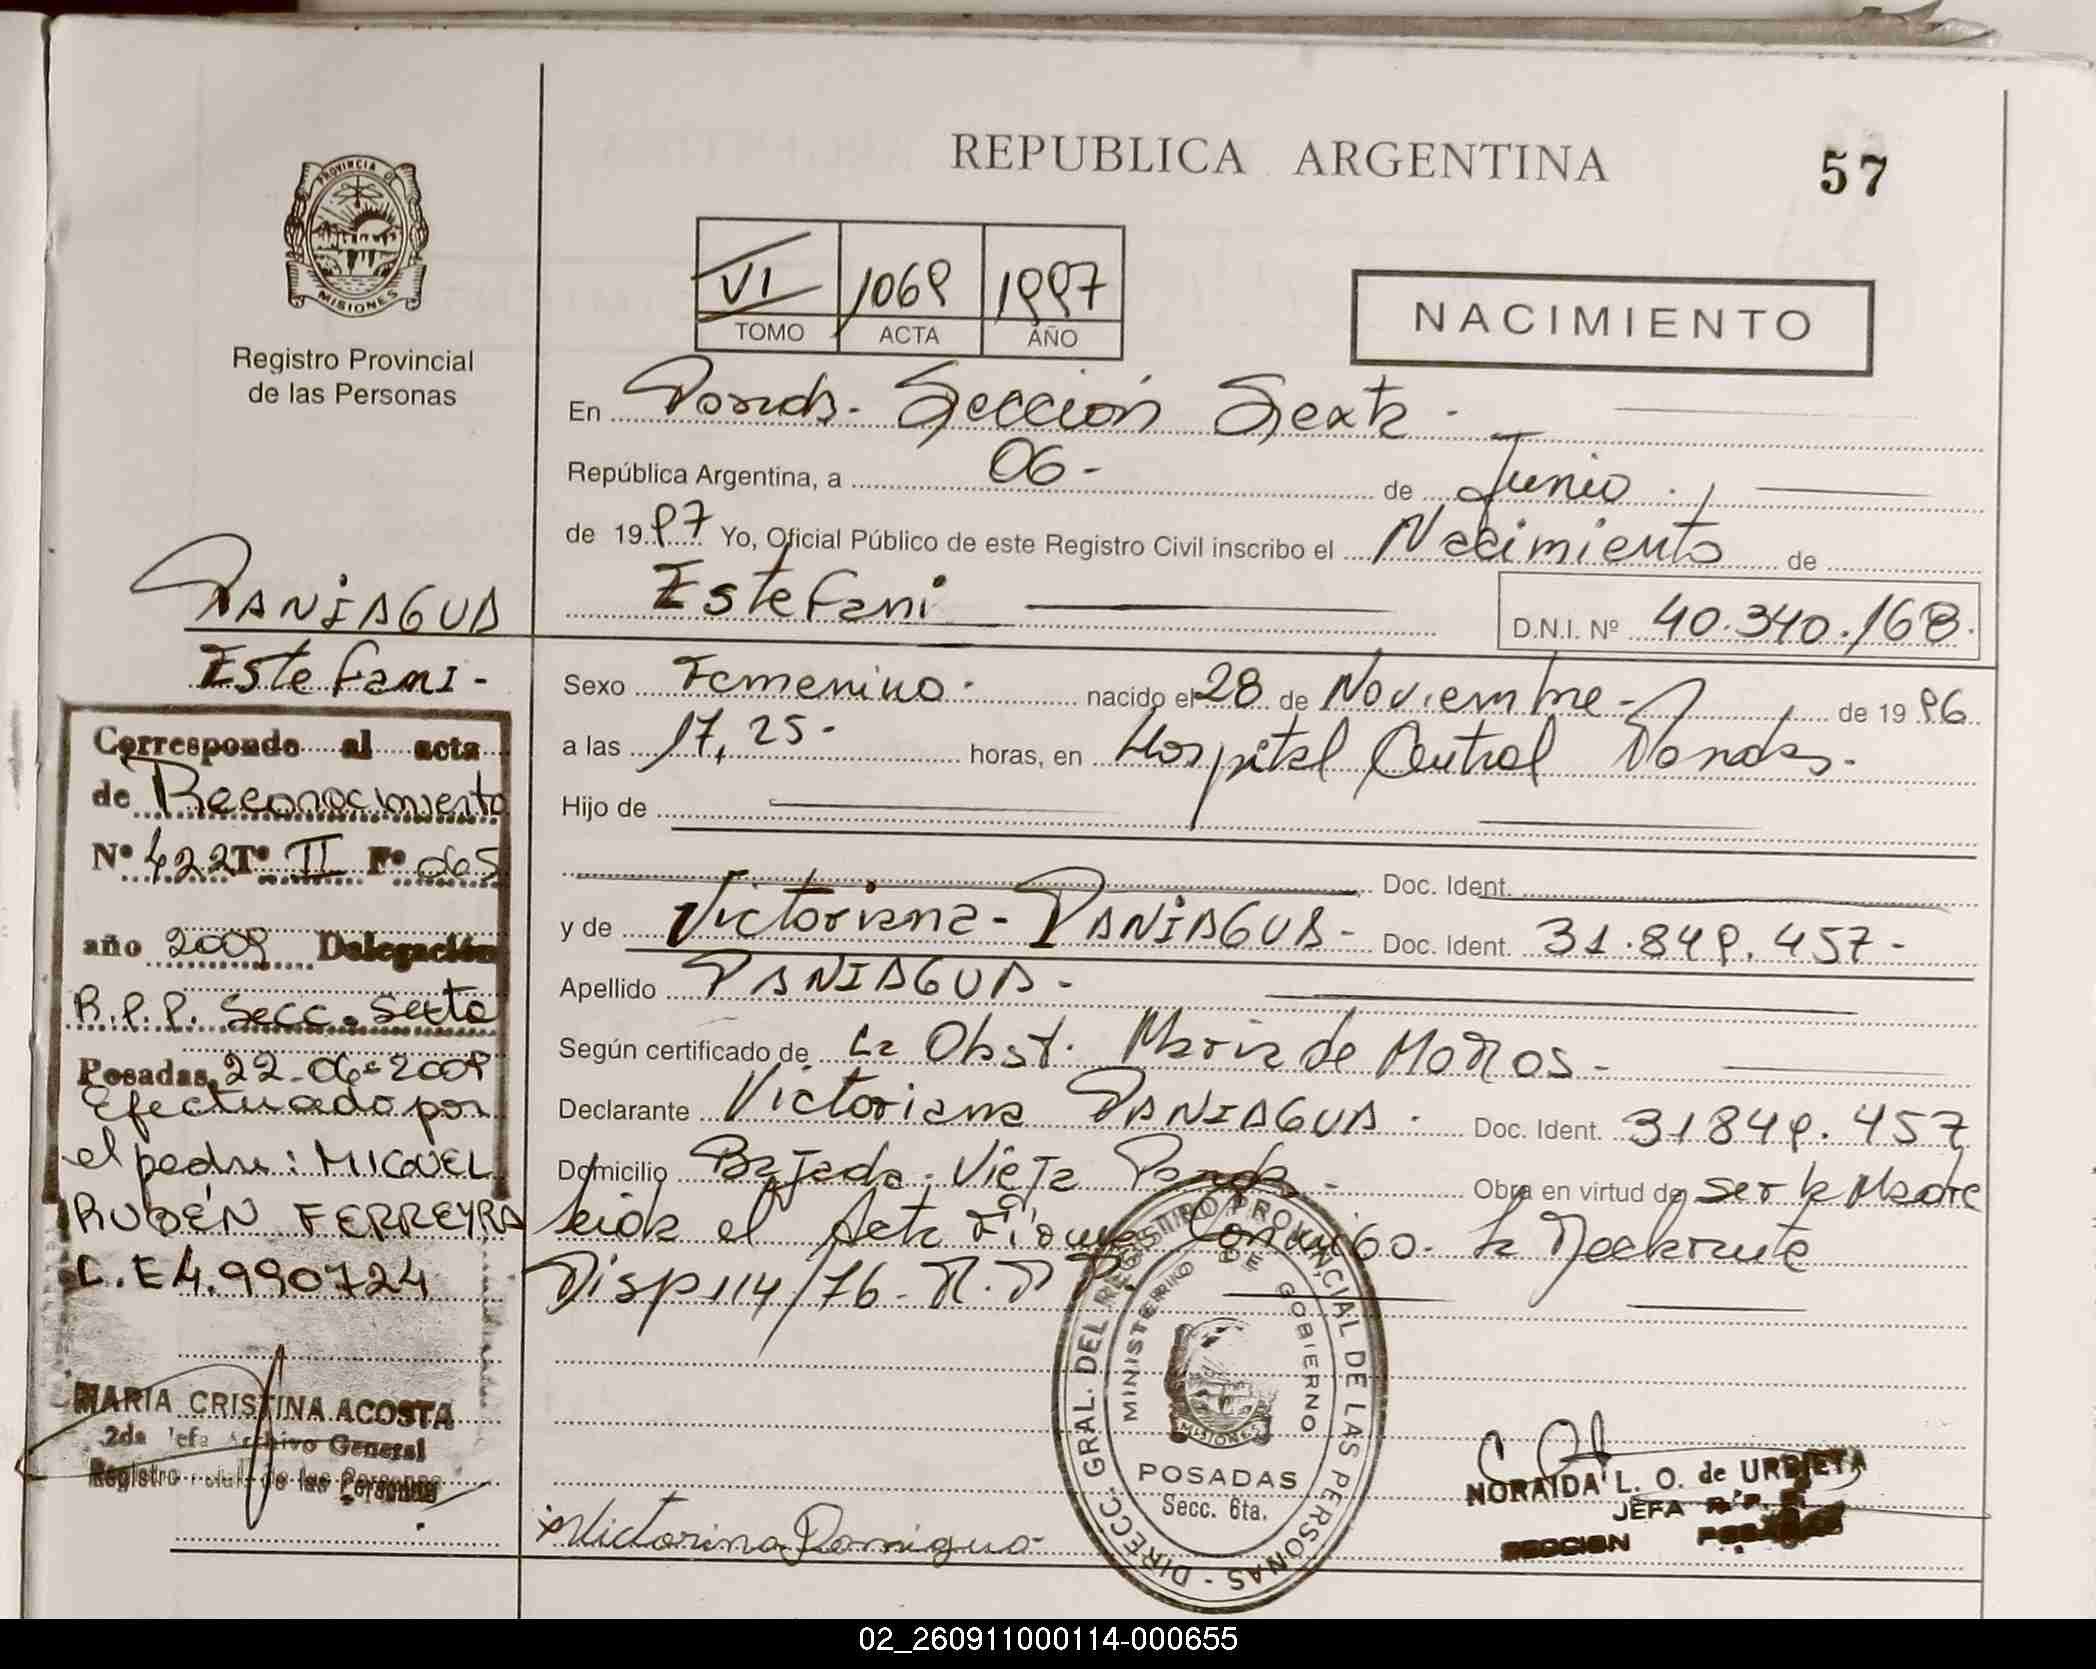 REPUBLICA ARGENTINA
57
PROVINCIA DE
MISIONES
Registro Provincial
de las Personas
VI 1069 1997
TOMO ACTA AÑO
NACIMIENTO
En Posadas - Sección Sexta -
República Argentina, a 06 - de Junio
de 1997 Yo, Oficial Público de este Registro Civil inscribo el Nacimiento de
Estefani
D.N.I. Nº 40.340.168.
Sexo Femenino - nacido el 28 de Noviembre - de 1996
a las 17,25 - horas, en Hospital Central Posadas -
Hijo de
Doc. Ident.
y de Victoriana - PANIAGUA - Doc. Ident. 31.849.457 -
Apellido PANIAGUA -
Según certificado de la Obst. Maria de
Declarante Victoriana PANIAGUA. Doc. Ident. 31849.457
Domicilio Bajada Vieja Posadas - Obra en virtud de ser la Madre
leida el Acta Firma Conmigo. la Declarante
Disp 114/76 - R.P.P.
PANIAGUA
Estefani -
Corresponde al acta
de Reconocimiento
Nº 422 Tº II Fº 065
año 2009 Delegación
R.P.P. Secc. Sexta
Posadas, 22-06-2009
Efectuado por
el padre: MIGUEL
RUBÉN FERREYRA
C.E 4.990724
MARIA CRISTINA ACOSTA
2da Jefa Archivo General
Registro de las Personas
Victorina Paniagua
DIRECC. GRAL. DEL REGISTRO PROVINCIAL DE LAS PERSONAS -
MINISTERIO DE GOBIERNO
MISIONES
POSADAS
Secc. 6ta.
NORAIDA L. O. de URBIETA
JEFA R.P.P.
SECCION
02_260911000114-000655